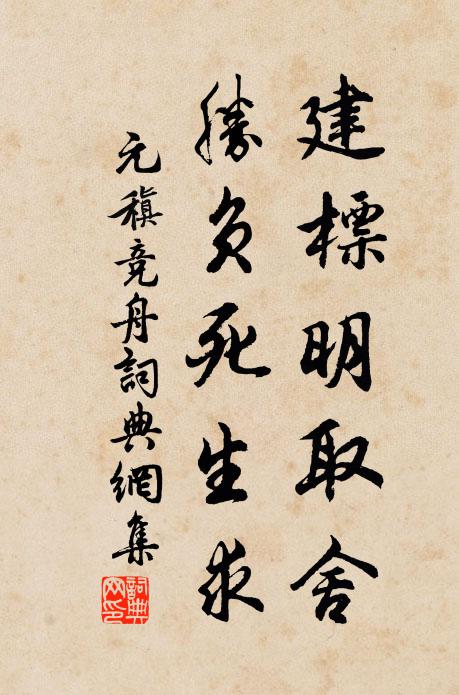 建標明取舍
勝負死生求
元稹競舟詞典網集
詞典網印